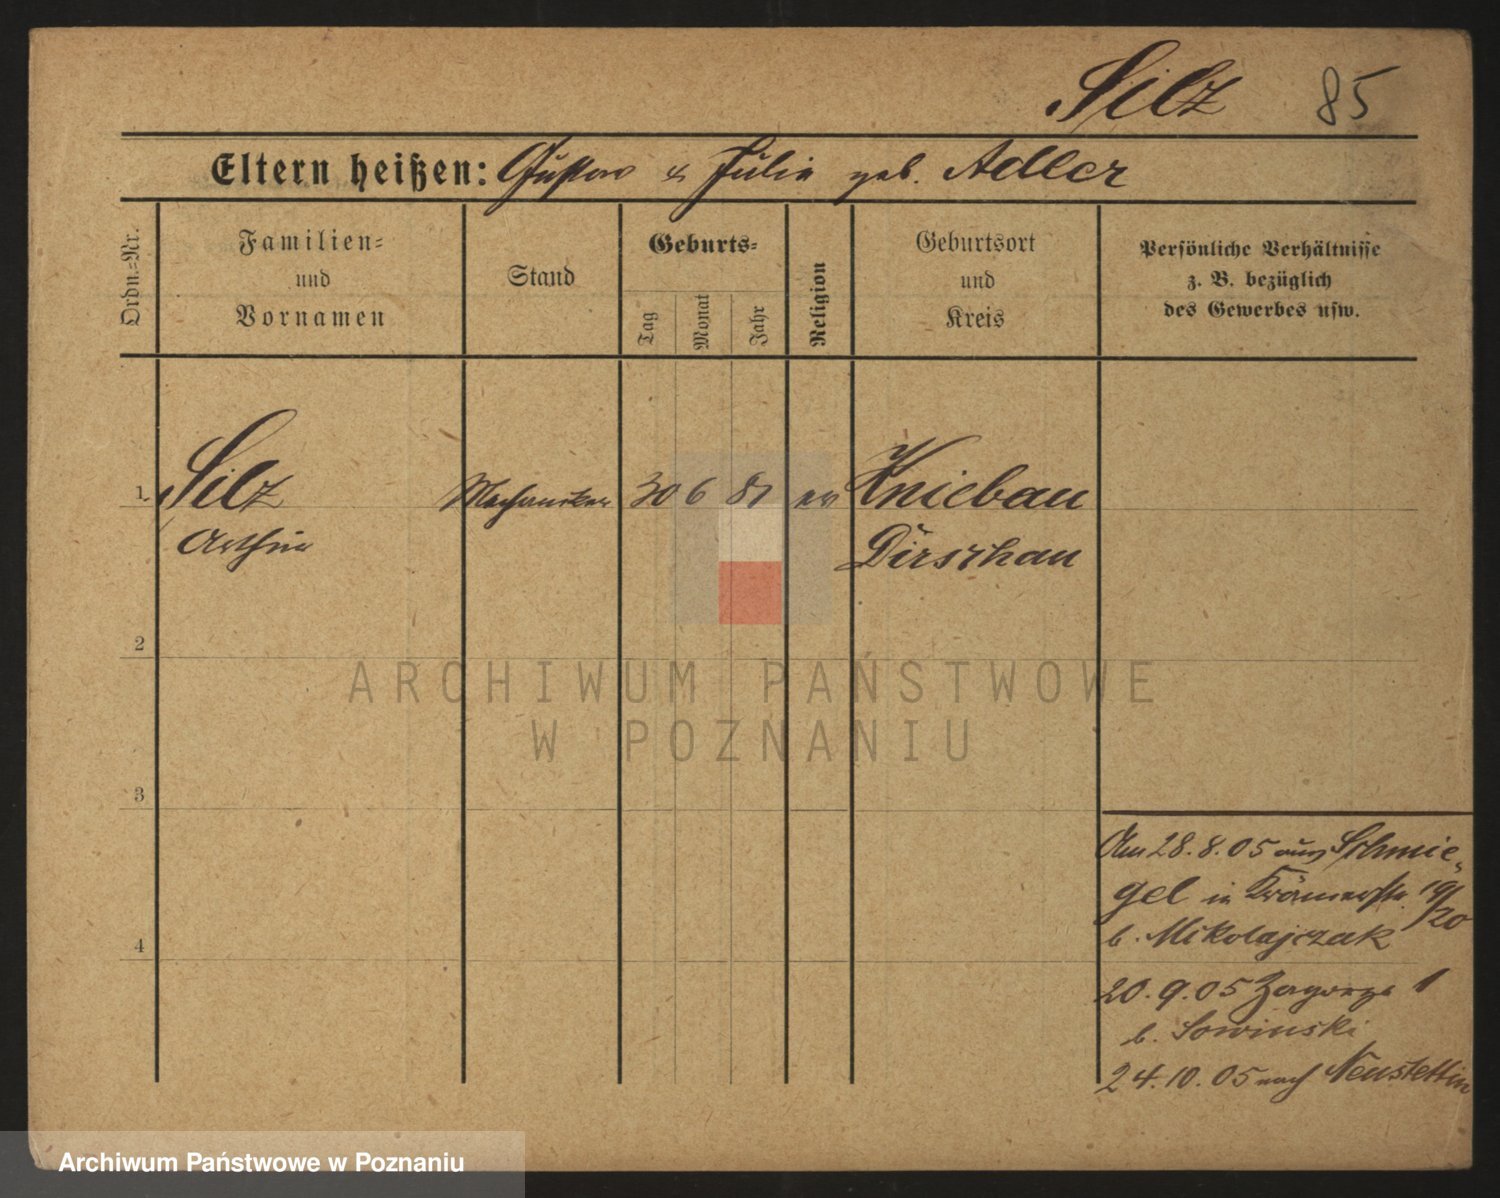 Silz 85
Eltern heißen: Gustav & Julie geb. Adler
Ordn.=Nr.
Familien=
und
Vornamen
Stand
Geburts=
Tag
Monat
Jahr
Religion
Geburtsort
und
Kreis
Persönliche Verhältnisse
z. B. bezüglich
des Gewerbes usw.
1. Silz Mechaniker 30 6 81 ev Kniebau
Arthur Dirschau
2
3
4
Am 28.8.05 aus Schmie-
gel in Krämerstr. 19/20
b. Mikolajczak
20.9.05 Zagorze 1
b. Sowinski
24.10.05 nach Neustettin
ARCHIWUM PAŃSTWOWE
W POZNANIU
Archiwum Państwowe w Poznaniu